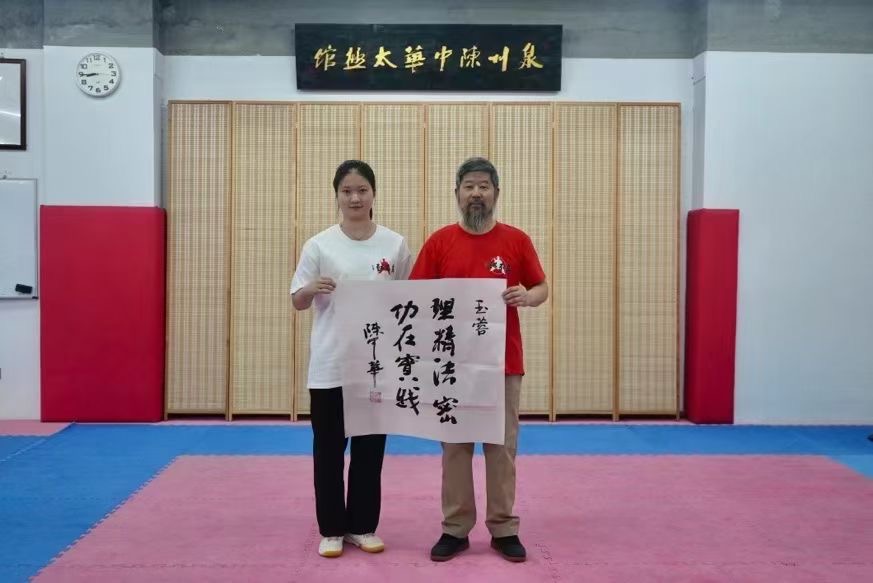 泉州陳中華太極館
玉蓉
理精法密
功在實践
陳中華